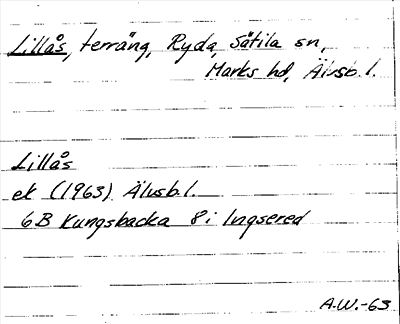 Lillås, terräng, Ryda, Sätila sn,
Marks hd, Älvsb. l.
Lillås
ek (1963) Älvsb. l.
6B Kungsbacka 8i Ingsered
A.W.-63